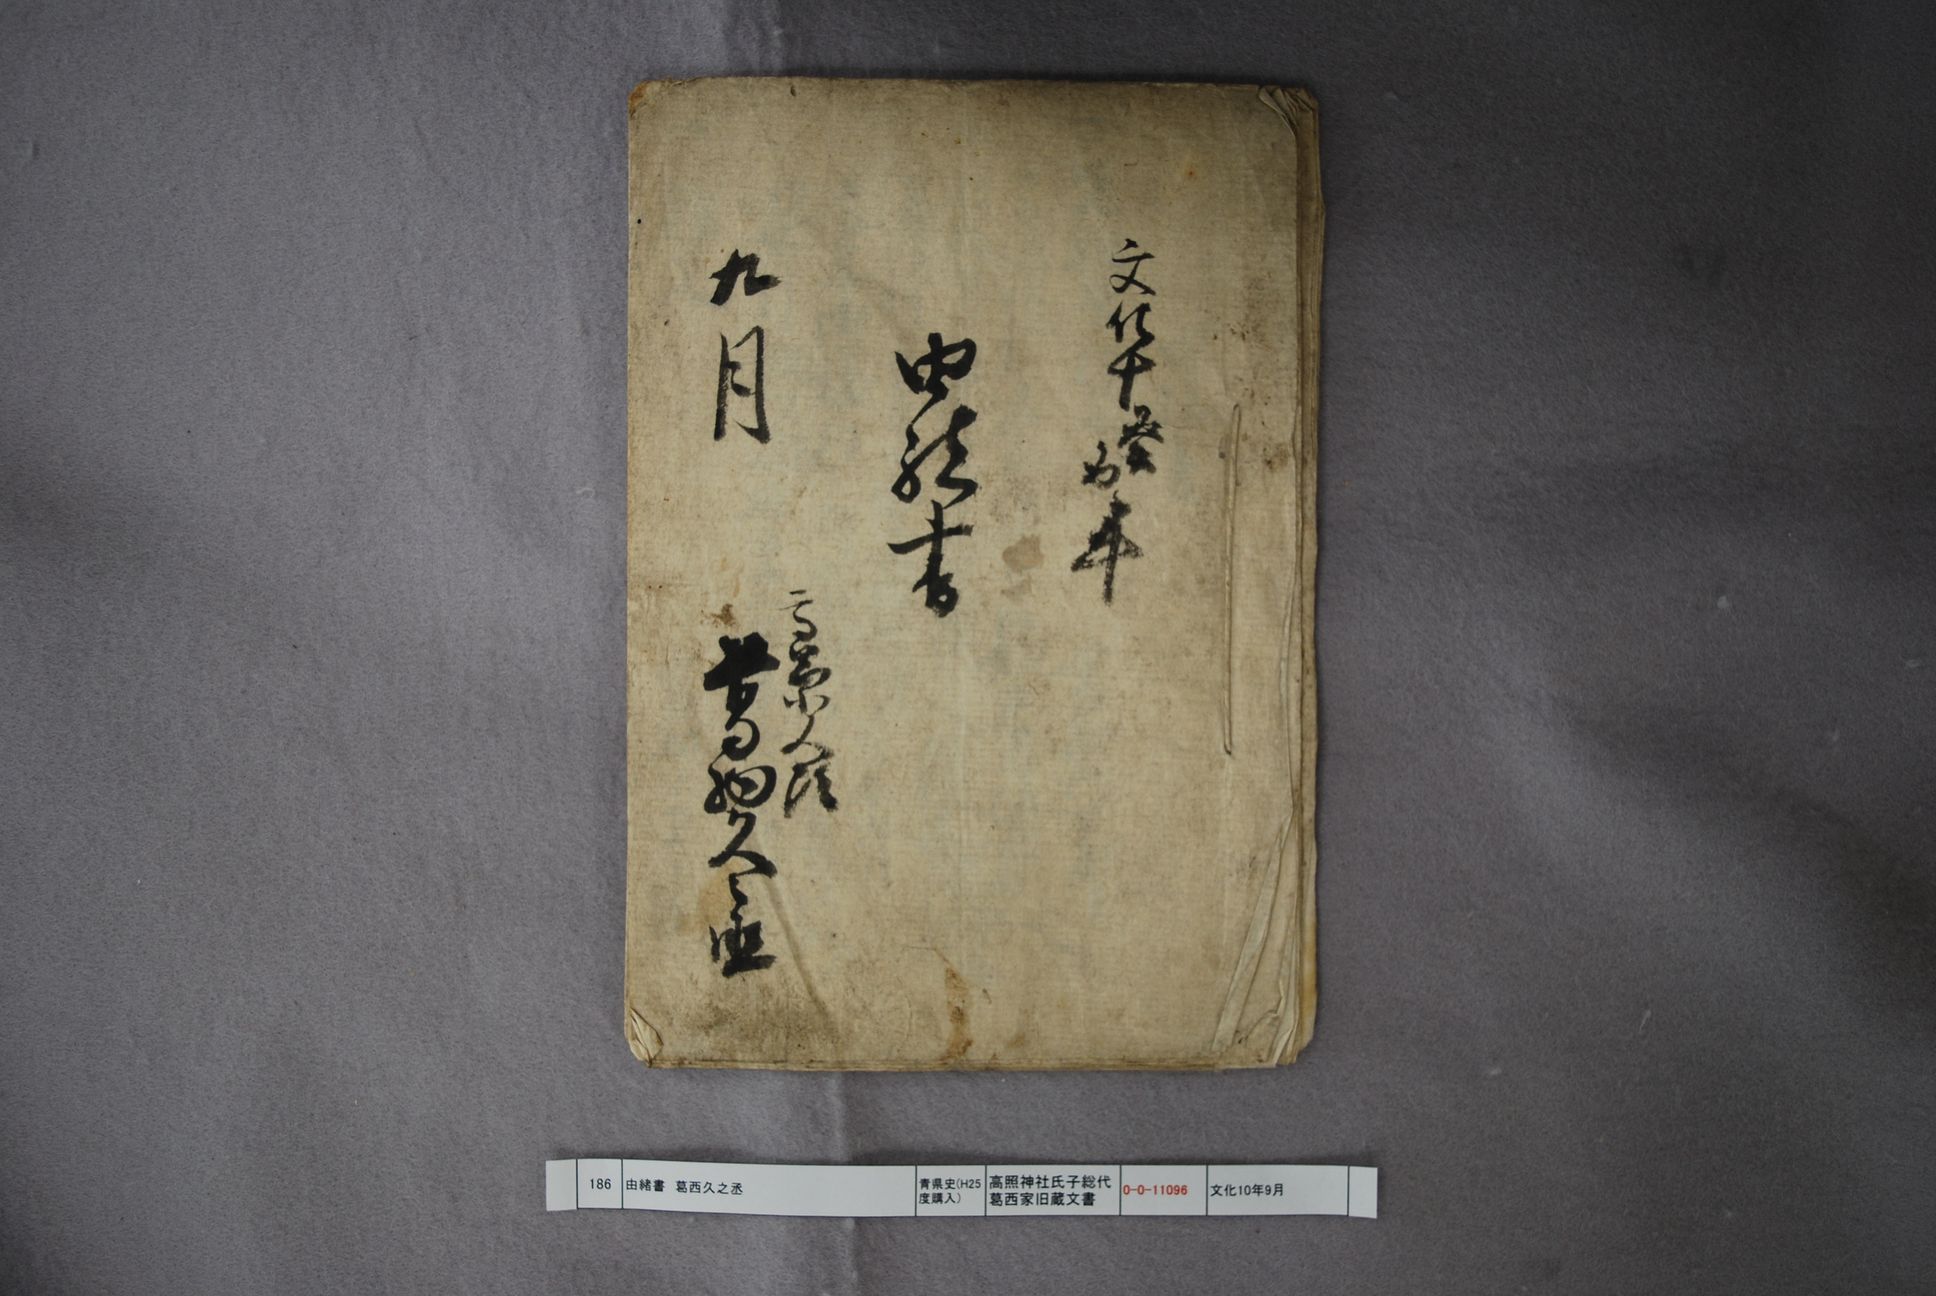 文化十癸酉年
由緒書
九月
葛西久之丞
186
由緒書 葛西久之丞
青県史(H25
度購入)
高照神社氏子総代
葛西家旧蔵文書
0-0-11096
文化10年9月